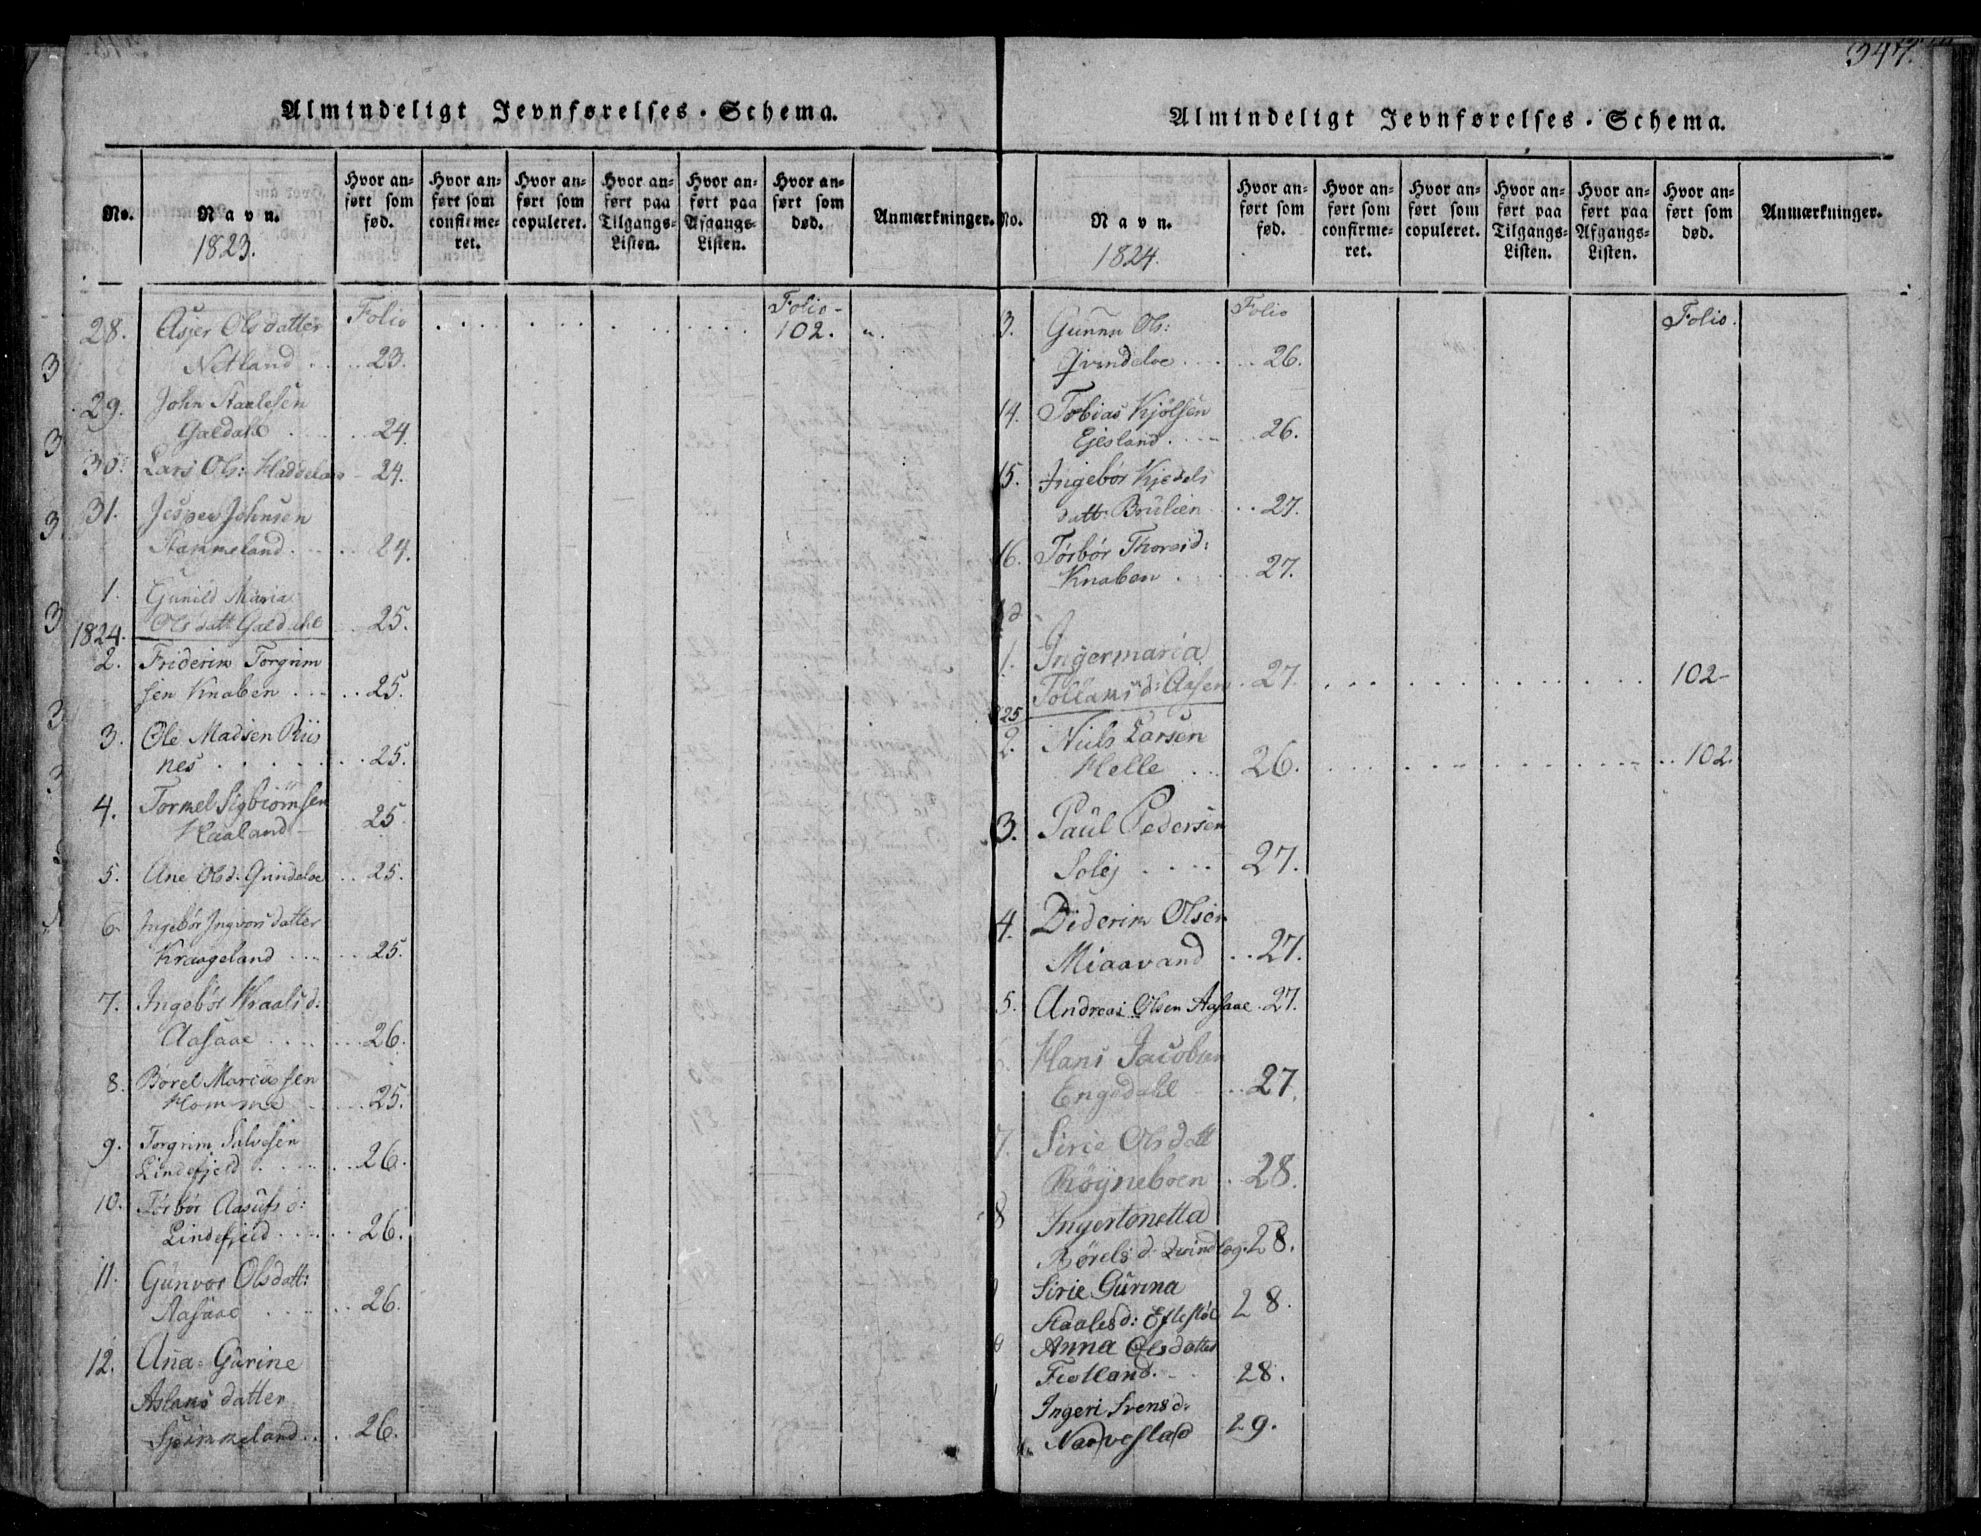 347.
Almindeligt Jevnførelses-Schema.
No.
Navn.
1823.
Hvor anført som fød.
Hvor anført som confirmeret.
Hvor anført som copuleret.
Hvor anført paa Tilgangs-Listen.
Hvor anført paa Afgangs-Listen.
Hvor anført som død.
Anmærkninger.
Folio
Folio
28. Asjer Olsdatter
Netland . . . . 23. 102. ".
29. John Staalesen
Galdahl . . . . 24.
30. Lars Ols: Haddeland - 24.
31. Jesper Johnsen
Stammeland . . . . 24.
1. Gunild Maria
1824. Ols datt Galdahl . . 25.
2. Friderik Torgrim
sen Knaben . . . . 25.
3. Ole Madsen Riis
nes . . . . . . 25.
4. Tormel Sigbiørnsen
Haaland - 25.
5. Ane Olsd: Qvindeloe . . 25.
6. Ingebør Ingvorsdatter
Kraageland . . . . 25.
7. Ingebør Wraalsd:
Aasaae . . . . . 26.
8. Børel Marcussen
Homme . . . . 25.
9. Torgrim Salvesen
Lindefjeld . . . . 26.
10. Tørbør Aasufsd:
Lindefjeld . . . . 26.
11. Gunvor Olsdatt:
Aasaae . . . . 26.
12. Aña Gurine
Aslaks datter
Sjerkeland . . . 26.
Almindeligt Jevnførelses-Schema.
No.
Navn.
1824.
Hvor anført som fød.
Hvor anført som confirmeret.
Hvor anført som copuleret.
Hvor anført paa Tilgangs-Listen.
Hvor anført paa Afgangs-Listen.
Hvor anført som død.
Anmærkninger.
Folio
Folio.
3. Guñu Ols:
Qvindeloe . . . . 26.
14. Tobias Kjølsen
Ejesland . . . . 26.
15. Ingebør Kjedels
datt: Brulien . . . 27.
16. Tørbør Thoresd:
Knaben . . . . 27.
1. Ingermaria
Tollaksd: Aasen . 27. 102-
25
2. Niels Larsen
Helle . . . 26. 102.
3. Paul Pedersen
Solej . . . . 27.
4. Diderik Olsen
Miaavand . . 27.
5. Andreas Olsen Aasaae . 27.
Hans Jacobsen
Engedahl . . 27.
7. Sirie Olsdatt
Røyneboen . 28.
8 Ingertonetta
Børelsd: 28.
Sirie Gurina
Staalesd: Eftestøl 28.
Anna Olsdatter
Fiotland. . . 28.
Ingeri Svensd.
Narvestad 29.